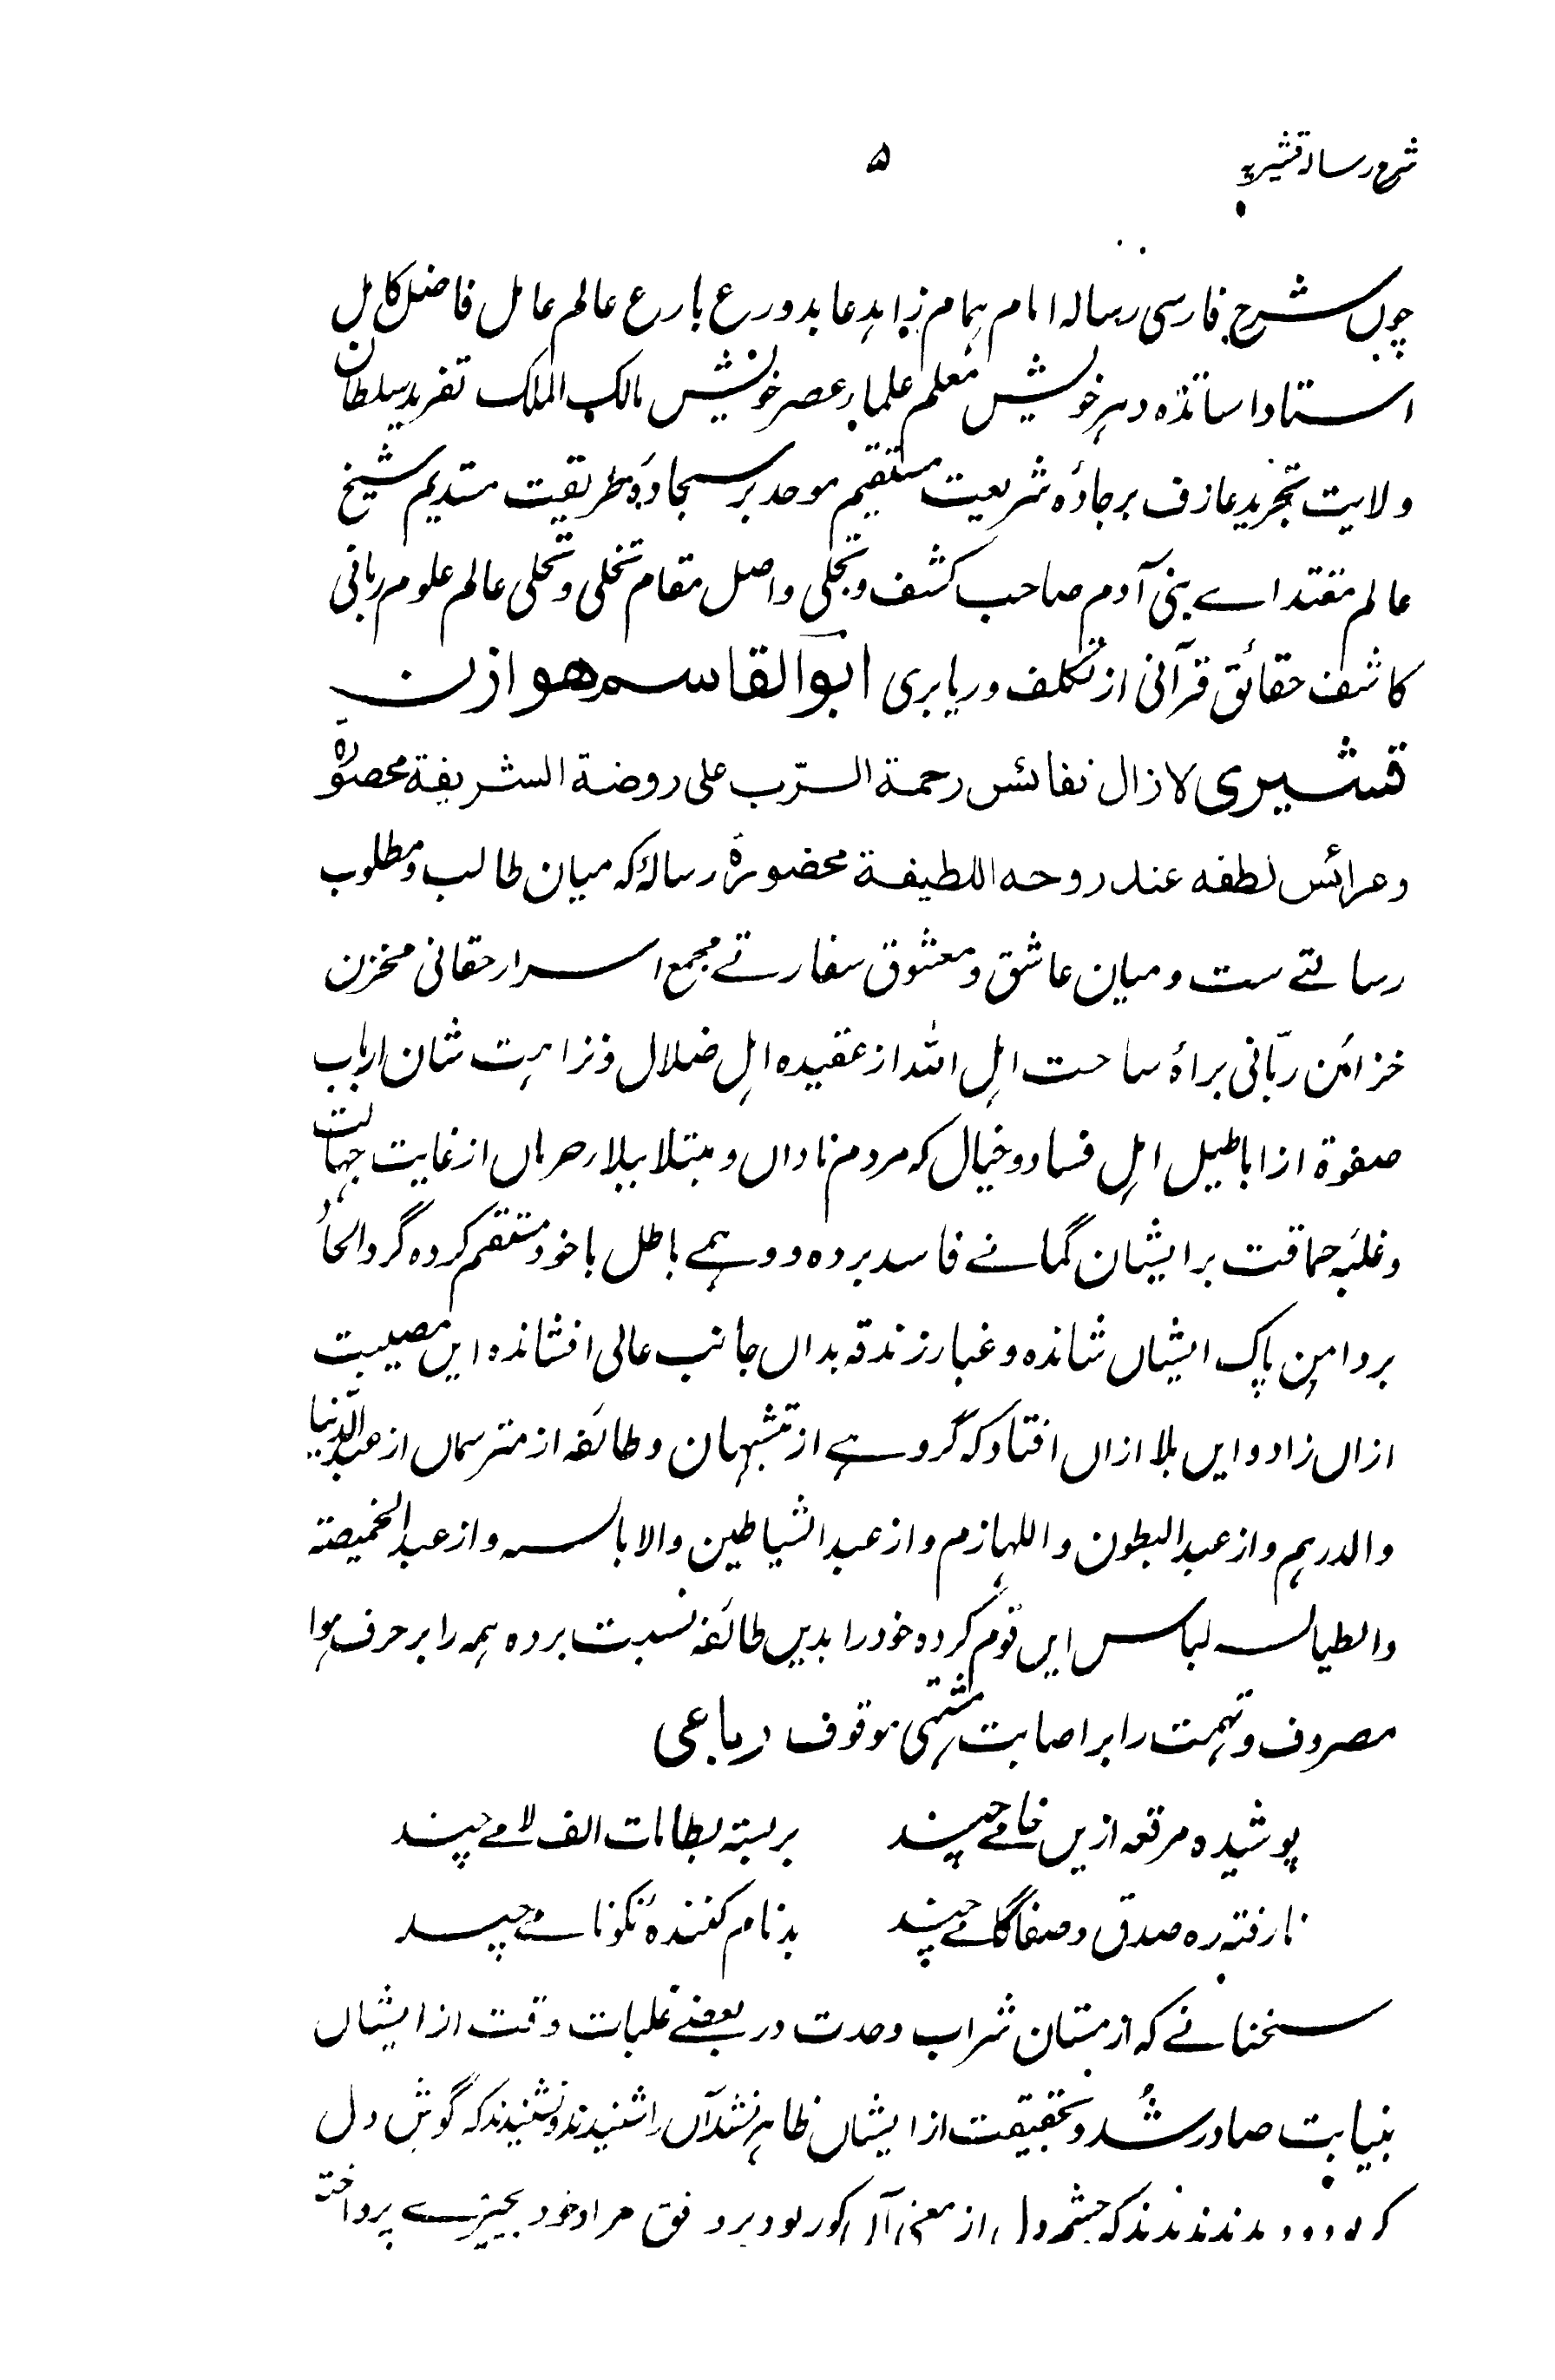 شرح رسالہ قشیریہ
۵
چوں شرح فارسی رسالہ امام ہمام زاہد عابد ورع بارع عالم عامل فاضل کامل
استاد اساتذہ دہر خویش معلم علماء عصر خویش مالک الملک تفرید سلطان
ولایت تجرید عارف برجادۂ شریعت مستقیم موحد بر سجادۂ طریقت مستدیم شیخ
عالم مقتداے بنی آدم صاحب کشف و تجلی واصل مقام تخلی و تحلی عالم علوم ربانی
کاشف حقائق قرآنی از تکلف و ریا بری ابوالقاسم هوازن
قشیری لازال نفائس رحمة الرّب علی روضة الشریفة محصورةً
وعرائس لطفه عند روحه اللطیفة محضورةً رسالۂ که میان طالب و مطلوب
رسالتے ست و میان عاشق و معشوق سفارتے مجمع اسرار حقانی مخزن
خزائن ربّانی براۂ ساحت اہل اللہ از عقیدہ اہل ضلال و نزاہت شان ارباب
صفوة از اباطیل اہل فساد و خیال کہ مردم ناداں و مبتلا ببلاء حرماں از غایت جہالت
و غلبۂ حماقت بر ایشان گمانے فاسد بردہ و وہمے باطل با خود مستقم کردہ گرد الحاد
بر دامن پاک ایشاں شاندہ و غبار زندقہ بداں جانب عالی افشاندہ ایں مصیبت
ازاں زاد و ایں بلا ازاں افتاد کہ گروہے از متشبہان و طائفہ از مترسماں از عبد الدّنیا
والدرہم و از عبد البطون و اللہازم و از عبد الشیاطین والابالسہ و از عبد الخمیصتہ
والطیالسہ لباس ایں قوم کردہ خود را بدیں طائفہ نسبت بردہ ہمہ را بر حرف ہوا
مصروف و تہمت را بر اصابت مشتہی موقوف رباعی
پوشیدہ مرقعہ ازیں خامے چند بربستہ بطامات الف لامے چند
نارفتہ رہ صدق و صفا گامے چند بدنام کنندۂ نکونامے چند
سخنانے کہ از مستان شراب وحدت در بعضے غلبات وقت از ایشاں
بنیابت صادر شُد و بحقیقت از ایشاں ظاہر نشد آں را شنیدند و نشنیدند کہ گوش دل
کر بود و دیدند ندیدند کہ چشم دل از معنی آں کور بود بر وفق مراد خود بچیزے پرداختہ